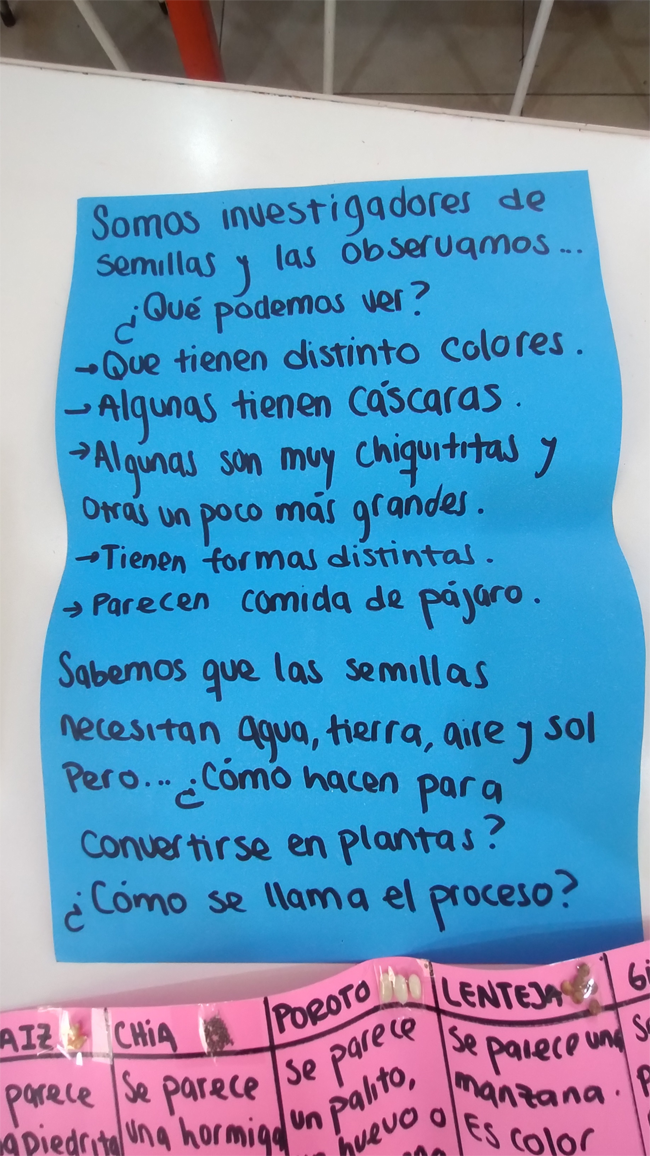 Somos investigadores de
semillas y las observamos...
¿Qué podemos ver?
→Que tienen distinto colores.
→Algunas tienen cáscaras.
→Algunas son muy chiquititas y
otras un poco más grandes.
→Tienen formas distintas.
→Parecen comida de pájaro.
Sabemos que las semillas
necesitan agua, tierra, aire y sol
Pero... ¿Cómo hacen para
convertirse en plantas?
¿Cómo se llama el proceso?
AIZ
parece
piedrita
CHIA
Se parece
una hormiga
POROTO
Se parece
un palito,
huevo o
LENTEJA
Se parece una
manzana.
Es color